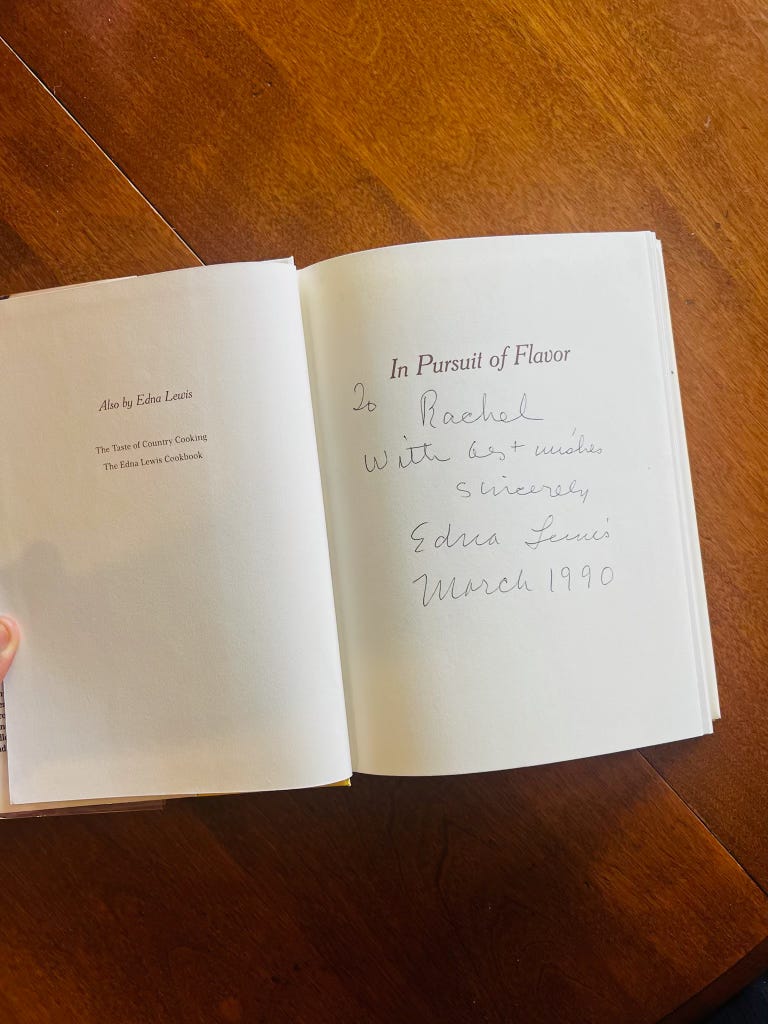 Also by Edna Lewis
The Taste of Country Cooking
The Edna Lewis Cookbook
In Pursuit of Flavor
To Rachel
With best wishes
Sincerely
Edna Lewis
March 1990